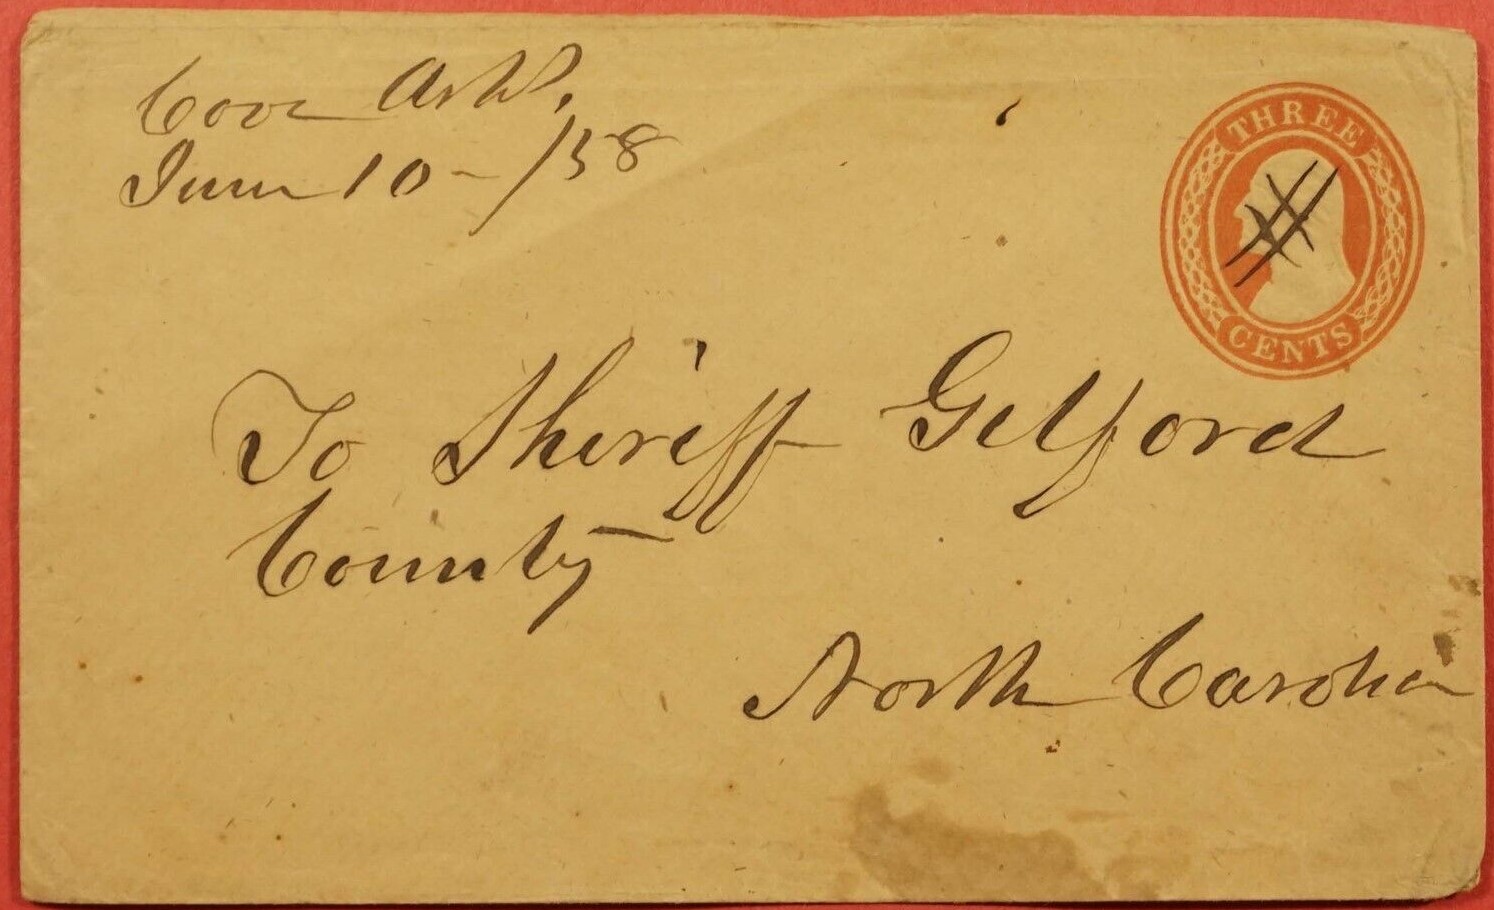 Cove Arks.
June 10 - /58
THREE
CENTS
To Sheriff Gilford
County
North Carolina